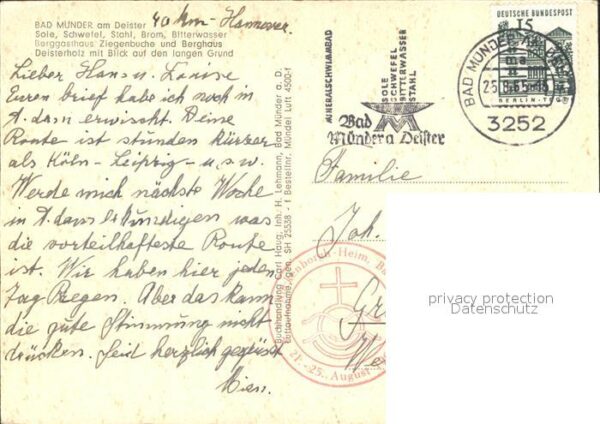 BAD MÜNDER am Deister 40 km - Hannover.
Sole, Schwefel, Stahl, Brom, Bitterwasser
Berggasthaus Ziegenbuche und Berghaus
Deisterholz mit Blick auf den langen Grund
Lieber Hans u. Louise
Euren brief habe ich noch in
A.dam erwischt. Deine
Route ist stunden kürzer
als Köln-Leipzig-u.s.w.
Werde mich nächste Woche
in A.dam erkundigen was
die vorteilhafteste Route
ist. Wir haben hier jeden
Tag Regen. Aber das kann
die gute Stimmung nicht
drücken. Seid herzlich gegrüsst
Wien.
Buchhandlung Carl Haug, Inh. H. Lehmann, Bad Münder a. D.
Luftaufnahme, gen. SH 25538 - f Bestellnr. Mündel Luft 4500-f
MINERALSCHWIMMBAD
SOLE
SCHWEFEL
BITTERWASSER
STAHL
Bad
Münder a Deister
DEUTSCHE BUNDESPOST
15
BERLIN-TEGEL
BAD MÜNDER
3252
Familie
Joh.
Heim, Ba
21.-25. August
privacy protection
Datenschutz